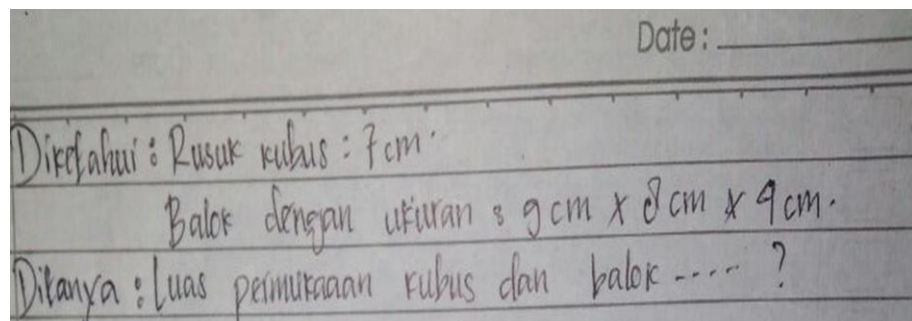 Date:
Diketahui: Rusuk kubus: 7 cm.
Balok dengan ukuran: 9 cm x 8 cm x 4 cm.
Ditanya: Luas permukaaan kubus dan balok ....?